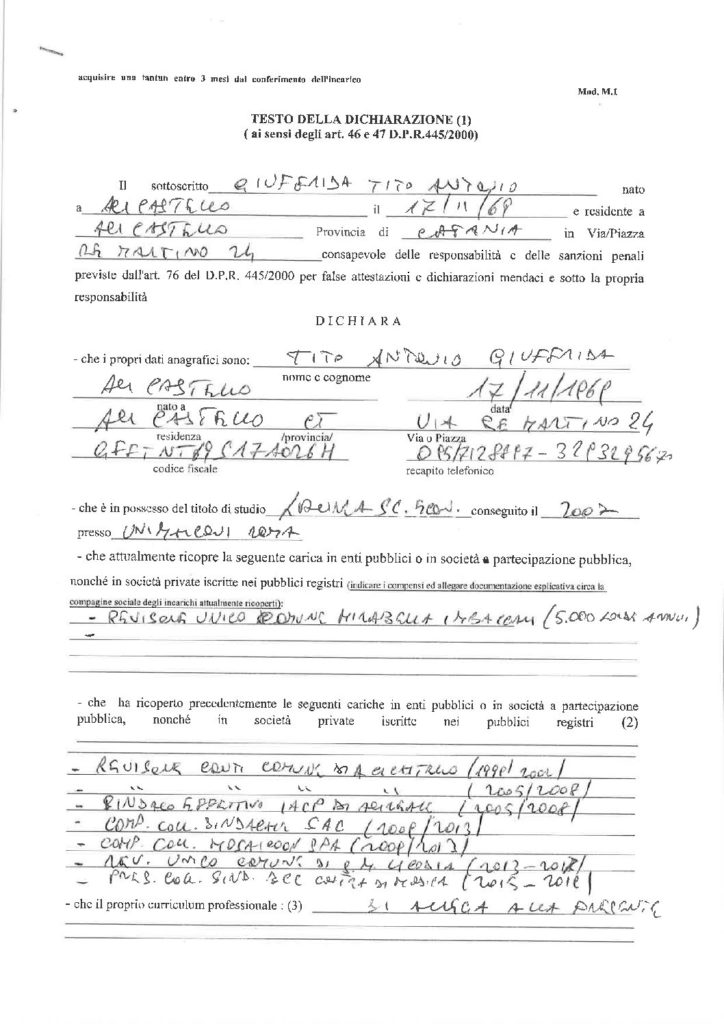 acquisire una tantum entro 3 mesi dal conferimento dell'incarico
Mod. M.1
TESTO DELLA DICHIARAZIONE (1)
( ai sensi degli art. 46 e 47 D.P.R.445/2000)
Il sottoscritto GIUFFRIDA TITO ANTONIO nato
a ACI CASTELLO il 17/11/69 e residente a
ACI CASTELLO Provincia di CATANIA in Via/Piazza
RE MARTINO 24 consapevole delle responsabilità e delle sanzioni penali
previste dall'art. 76 del D.P.R. 445/2000 per false attestazioni e dichiarazioni mendaci e sotto la propria
responsabilità
DICHIARA
- che i propri dati anagrafici sono: TITO ANTONIO GIUFFRIDA
nome e cognome
ACI CASTELLO 17/11/1969
nato a data
ACI CASTELLO CT VIA RE MARTINO 24
residenza /provincia/ Via o Piazza
GFFTNT69S17A026H
codice fiscale recapito telefonico
- che è in possesso del titolo di studio LAUREA SC. ECON. conseguito il 2002
presso ROMA
- che attualmente ricopre la seguente carica in enti pubblici o in società a partecipazione pubblica,
nonché in società private iscritte nei pubblici registri (indicare i compensi ed allegare documentazione esplicativa circa la
compagine sociale degli incarichi attualmente ricoperti):
- REVISORE UNICO COMUNE MIRABELLA IMBACCARI (5.000 LORDI ANNUI)
-
- che ha ricoperto precedentemente le seguenti cariche in enti pubblici o in società a partecipazione
pubblica, nonché in società private iscritte nei pubblici registri (2)
- REVISORE CONTI COMUNE DI ACI CASTELLO (1998/2002)
- " " " " (2005/2008)
- SINDACO EFFETTIVO IACP DI ACIREALE (2005/2008)
- COMP. COLL. SINDACALE SAC (2008/2013)
- COMP. COLL. MOSAICOON SPA (2009/2013)
- REV. UNICO COMUNE DI LICODIA (2013-2017)
- PRES. COLL. SIND. BCC DI (2015-2018)
- che il proprio curriculum professionale : (3) SI ALLEGA ALLA PRESENTE